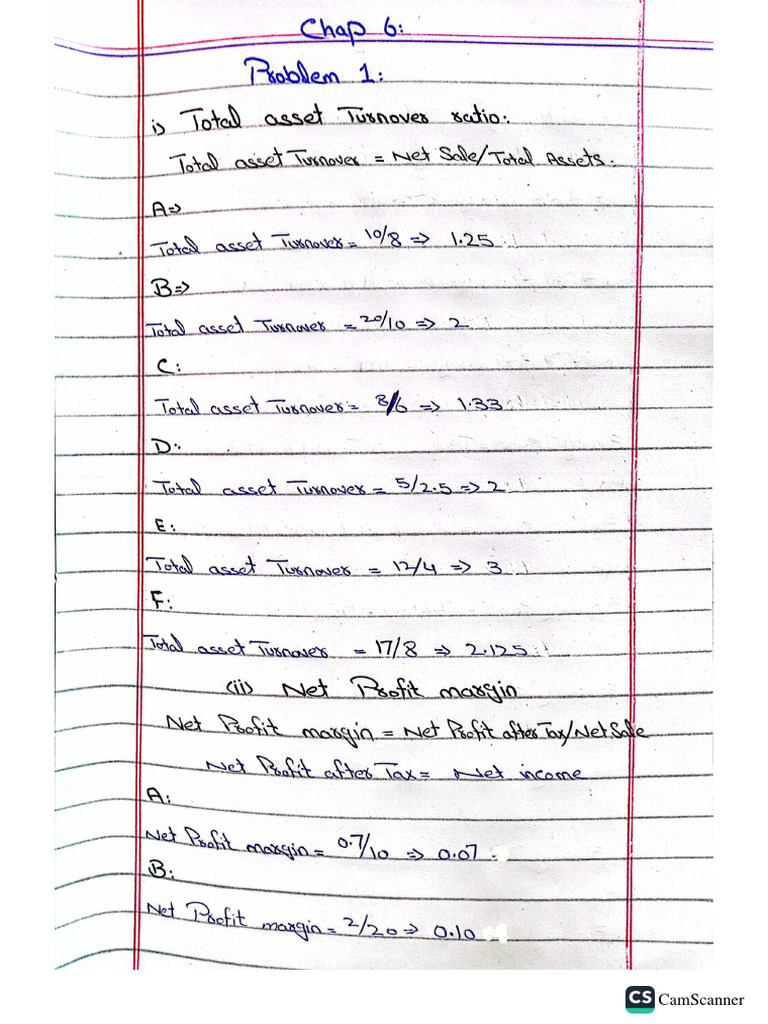 Chap 6:
Problem 1:
i) Total asset Turnover ratio:
Total asset Turnover = Net Sale/Total Assets.
A=>
Total asset Turnover = 10/8 => 1.25
B=>
Total asset Turnover = 20/10 => 2
C:
Total asset Turnover = 8/6 => 1.33
D:
Total asset Turnover = 5/2.5 => 2
E:
Total asset Turnover = 12/4 => 3
F:
Total asset Turnover = 17/8 => 2.125
(ii) Net Profit margin
Net Profit margin = Net Profit after Tax/Net Sale
Net Profit after Tax = Net income
A:
Net Profit margin = 0.7/10 => 0.07
B:
Net Profit margin = 2/20 => 0.10
CS CamScanner